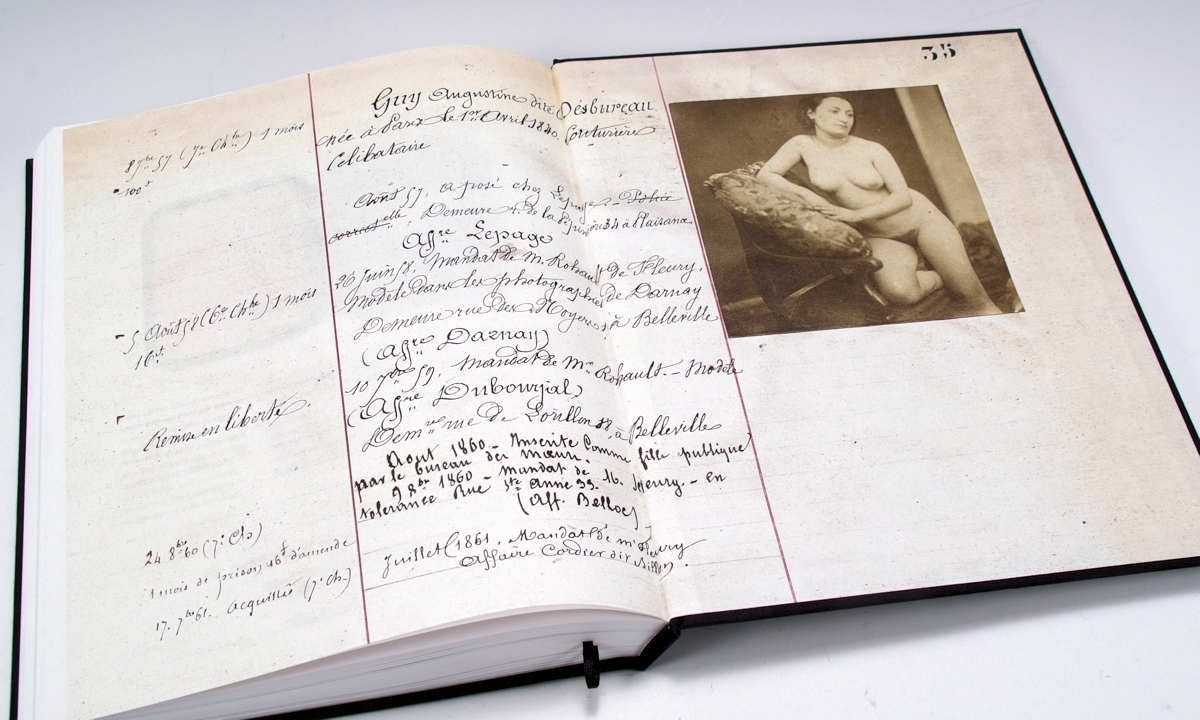 35
Guy Augustine dite Desbureau
née à Paris le 1er Avril 1840. Couturière
Célibataire
8 7bre 57 (7e Chbre) 1 mois
100f
Août 57, a posé chez Lepage. Police
correctelle. Demeure 4. de la 34 à Plaisance
Affre Lepage
26 Juin 58. Mandat de M. Rohault de Fleury.
Modèle dans les photographies de Darnay
5 Août 58 (6e Chbre) 1 mois
16f.
Demeure rue des Noyers à Belleville
(Affre Darnay)
10 7bre 59. Mandat de Mr Rohault. – Modèle
(Affre Dubourjal)
Remise en liberté.
Demre rue de 88, à Belleville
Aout 1860 – Inscrite comme fille publique
par le bureau des moeurs.
9 8bre 1860 – mandat de M. Fleury. – en
tolerance Rue Ste Anne 33.
(Aff. Belloc)
24 8bre 60 (7e Ch)
1 mois de prison, 16f d'amende
Juillet 1861. Mandat de mr Fleury
Affaire Cordier dit
17. 7bre 61. acquittée (7e Ch.)